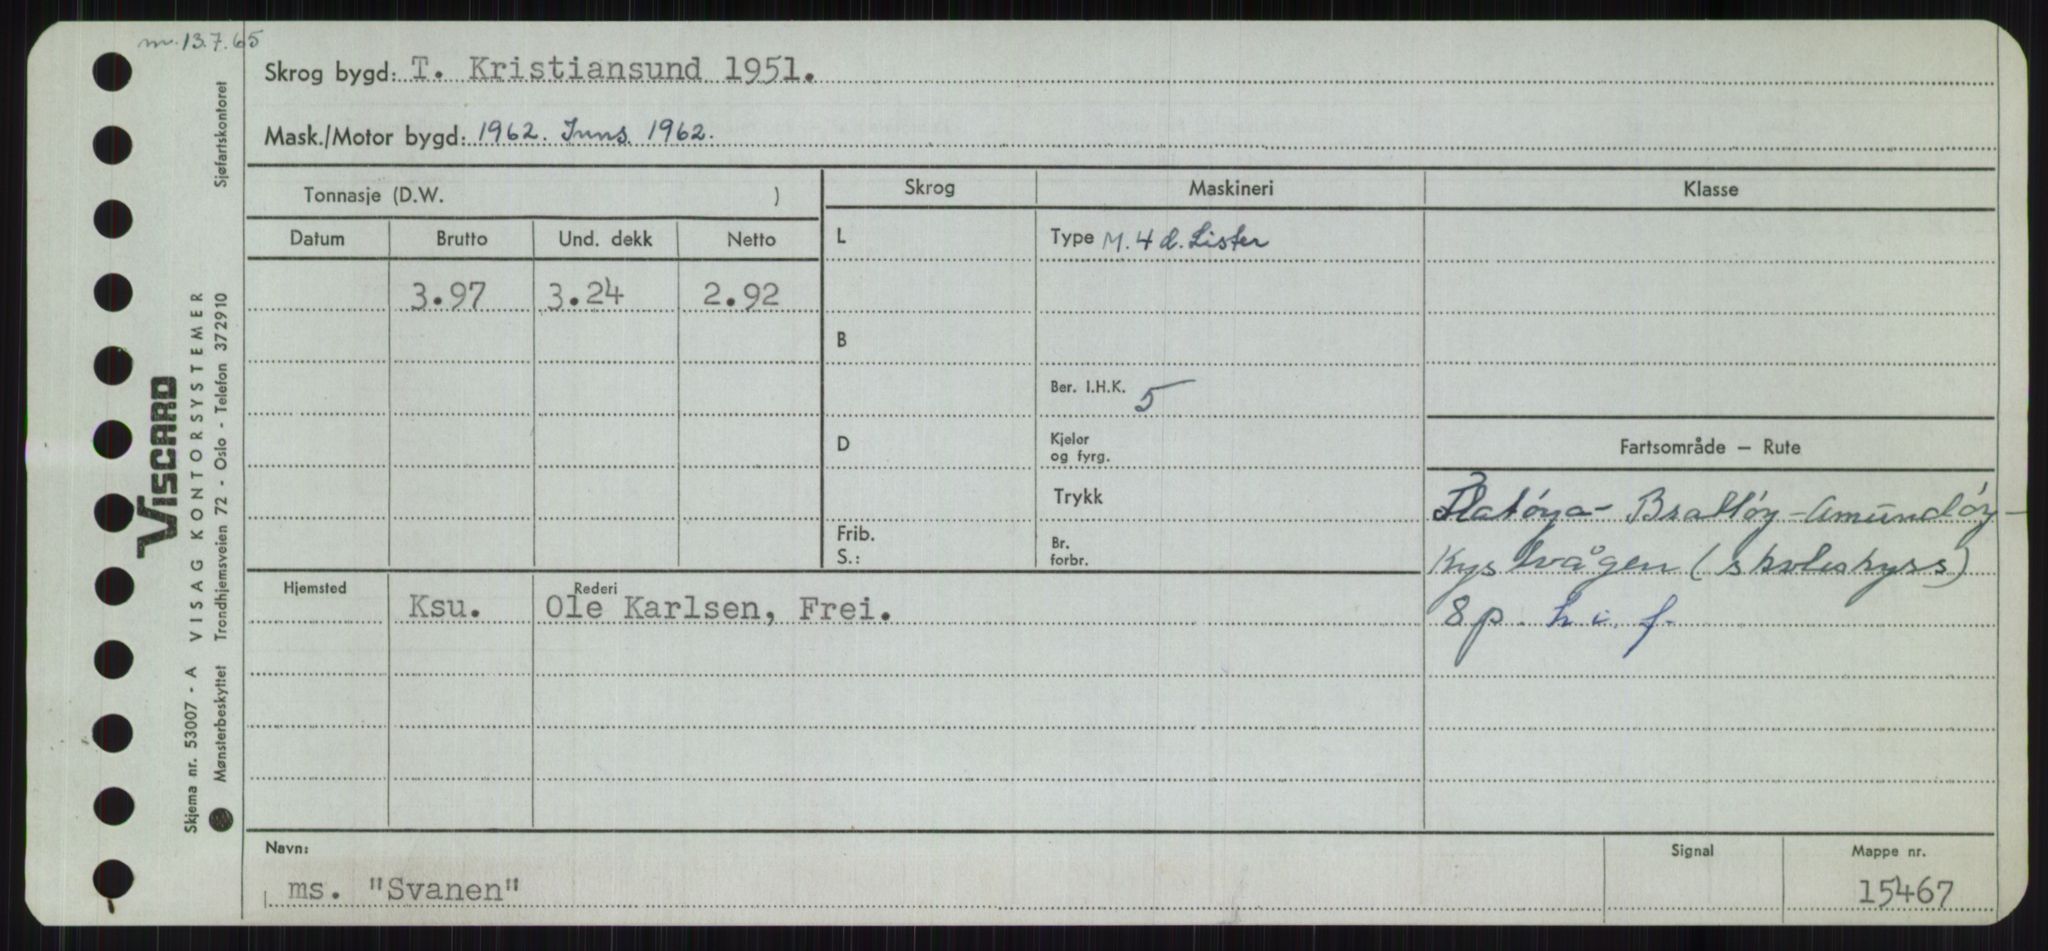 m. 13.7.65
Skrog bygd: T. Kristiansund 1951.
Mask./Motor bygd: 1962. Inns. 1962.
Tonnasje (D.W. )
Datum Brutto Und. dekk Netto
3.97 3.24 2.92
Skrog Maskineri Klasse
L
B
D
Frib.
S.:
Type M. 4 d. Lister
Ber. I.H.K. 5
Kjeler
og fyrg.
Trykk
Br.
forbr.
Fartsområde — Rute
Flatøya - Bralløy - Amundøy -
Kystvågen (skoleskyss)
8 p. h. i. f.
Hjemsted Rederi
Ksu. Ole Karlsen, Frei.
Navn: Signal Mappe nr.
ms. "Svanen" 15467
Skjema nr. 53007 - A VISAG KONTORSYSTEMER
Mønsterbeskyttet Trondhjemsveien 72 - Oslo - Telefon 372910 Sjøfartskontoret
VISCARD